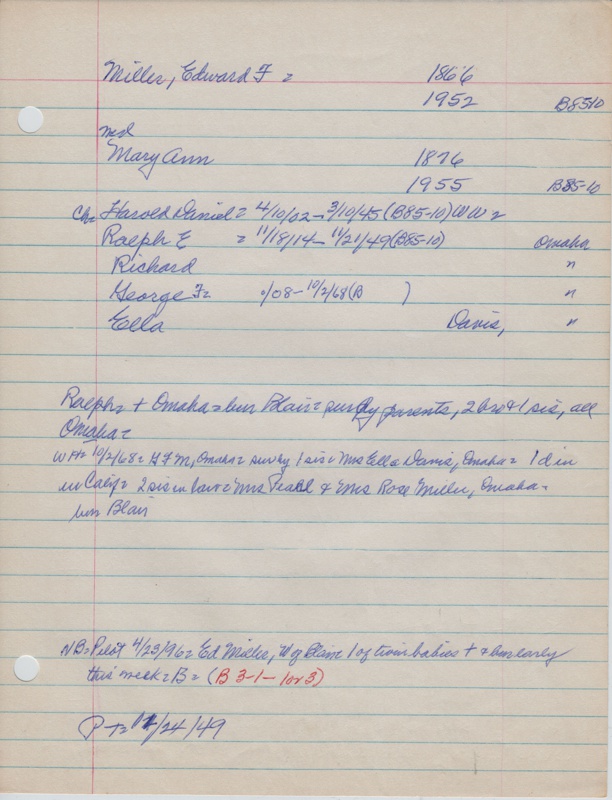 Miller, Edward F = 1866
1952 B85-10
md
Mary Ann 1876
1955 B85-10
Ch= Harold Daniel = 4/10/02 - 3/10/45 (B85-10) WW2
Ralph E = 11/18/14 - 11/21/49 (B85-10) Omaha
Richard "
George F= /08 - 10/2/68 (B ) "
Ella Davis, "
Ralph = + Omaha = bur Blair = surv by parents, 2 bro & 1 sis, all
Omaha =
WH= 10/2/68 = G F M, Omaha = surv by 1 sis = Mrs Ella Davis, Omaha = 1 d in
in Calif = 2 sis in law = Mrs Pearl & Mrs Rose Miller, Omaha =
bur Blair
NB = Pilot 4/23/96 = Ed Miller, W of Blair 1 of twin babies + & bur early
this week = B = (B 3-1- 1 or 3)
P-T= 11/24/49